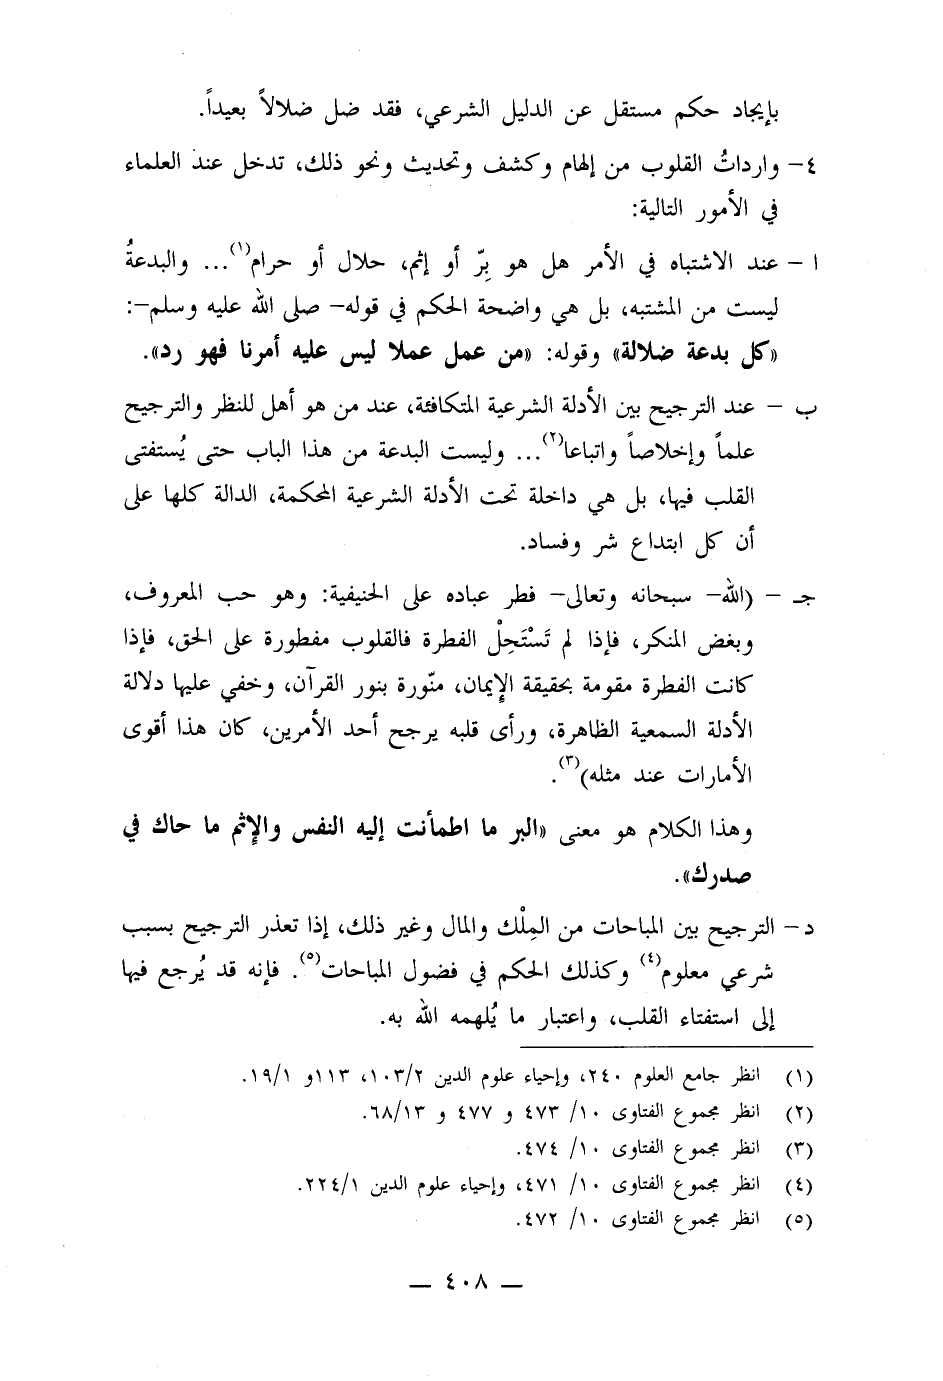 بإيجاد حكم مستقل عن الدليل الشرعي، فقد ضل ضلالاً بعيداً.
٤- وارداتُ القلوب من إلهام وكشف وتحديث ونحو ذلك، تدخل عند العلماء
في الأمور التالية:
ا - عند الاشتباه في الأمر هل هو بِرّ أو إثم، حلال أو حرام(١)... والبدعةُ
ليست من المشتبه، بل هي واضحة الحكم في قوله- صلى الله عليه وسلم-:
«كل بدعة ضلالة» وقوله: «من عمل عملا ليس عليه أمرنا فهو رد».
ب - عند الترجيح بين الأدلة الشرعية المتكافئة، عند من هو أهل للنظر والترجيح
علماً وإخلاصاً واتباعا(٢)... وليست البدعة من هذا الباب حتى يُستفتى
القلب فيها، بل هي داخلة تحت الأدلة الشرعية المحكمة، الدالة كلها على
أن كل ابتداع شر وفساد.
جـ - (الله- سبحانه وتعالى- فطر عباده على الحنيفية: وهو حب المعروف،
وبغض المنكر، فإذا لم تَسْتَحِلْ الفطرة فالقلوب مفطورة على الحق، فإذا
كانت الفطرة مقومة بحقيقة الإيمان، منّورة بنور القرآن، وخفي عليها دلالة
الأدلة السمعية الظاهرة، ورأى قلبه يرجح أحد الأمرين، كان هذا أقوى
الأمارات عند مثله)(٣).
وهذا الكلام هو معنى «البر ما اطمأنت إليه النفس والإثم ما حاك في
صدرك».
د - الترجيح بين المباحات من المِلْك والمال وغير ذلك، إذا تعذر الترجيح بسبب
شرعي معلوم(٤) وكذلك الحكم في فضول المباحات(٥). فإنه قد يُرجع فيها
إلى استفتاء القلب، واعتبار ما يُلهمه الله به.
(١) انظر جامع العلوم ٢٤٠، وإحياء علوم الدين ١٠٣/٢، ١١٣و ١٩/١.
(٢) انظر مجموع الفتاوى ١٠/ ٤٧٣ و ٤٧٧ و ٦٨/١٣.
(٣) انظر مجموع الفتاوى ١٠/ ٤٧٤.
(٤) انظر مجموع الفتاوى ١٠/ ٤٧١، وإحياء علوم الدين ٢٢٤/١.
(٥) انظر مجموع الفتاوى ١٠/ ٤٧٢.
— ٤٠٨ —